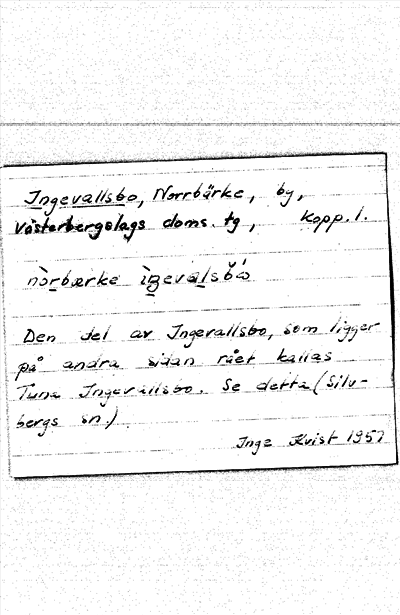 Ingevallsbo, Norrbärke, by,
Västerbergslags doms. tg, Kopp. l.
nòrbærke ìŋevalsbó
Den del av Ingevallsbo, som ligger
på andra sidan rået kallas
Tuna Ingevallsbo. Se detta (Silv-
bergs sn.)
Inga Kvist 1957